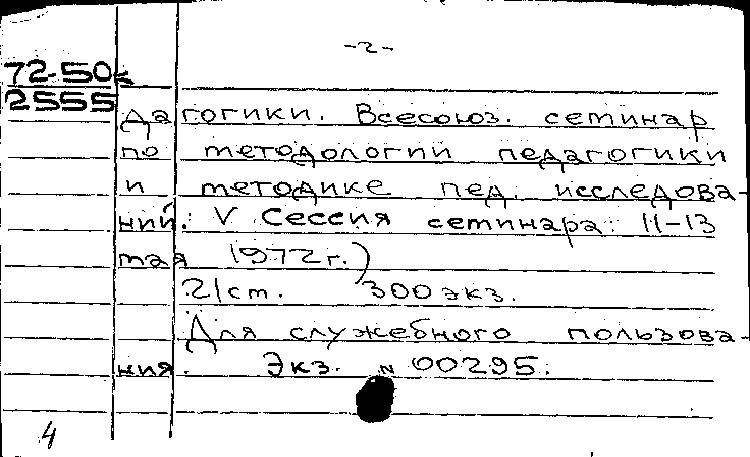 -2-
72-50к
2555
дагогики. Всесоюз. семинар
по методологии педагогики
и методике пед. исследова-
ний. V Сессия семинара: 11-13
мая 1972г.)
21ст. 300 экз.
Для служебного пользова-
ния. Экз. N 00295.
4